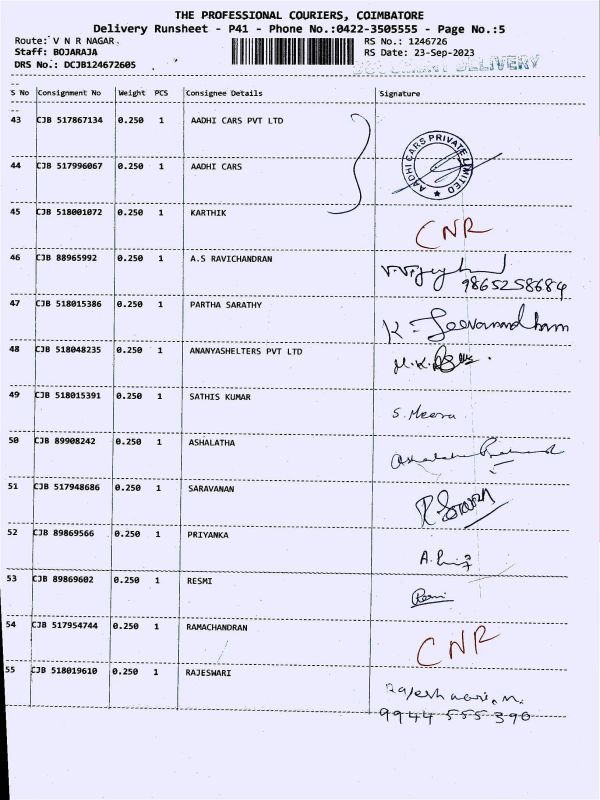 THE PROFESSIONAL COURIERS, COIMBATORE
Delivery Runsheet - P41 - Phone No.:0422-3505555 - Page No.:5
Route: V N R NAGAR. RS No.: 1246726
Staff: BOJARAJA RS Date: 23-Sep-2023
DRS No.: DCJB124672605 DOCUMENT DELIVERY
S No Consignment No Weight PCS Consignee Details Signature
43 CJB 517867134 0.250 1 AADHI CARS PVT LTD
AADHI CARS PRIVATE LIMITED
44 CJB 517996067 0.250 1 AADHI CARS
45 CJB 518001072 0.250 1 KARTHIK CNR
46 CJB 88965992 0.250 1 A.S RAVICHANDRAN
9865258684
47 CJB 518015386 0.250 1 PARTHA SARATHY K. Jeevanandham
48 CJB 518048235 0.250 1 ANANYASHELTERS PVT LTD
49 CJB 518015391 0.250 1 SATHIS KUMAR S. Meera
50 CJB 89908242 0.250 1 ASHALATHA
51 CJB 517948686 0.250 1 SARAVANAN
52 CJB 89869566 0.250 1 PRIYANKA
53 CJB 89869602 0.250 1 RESMI
54 CJB 517954744 0.250 1 RAMACHANDRAN CNR
55 CJB 518019610 0.250 1 RAJESWARI Rajeshwari. M.
9944 555 390